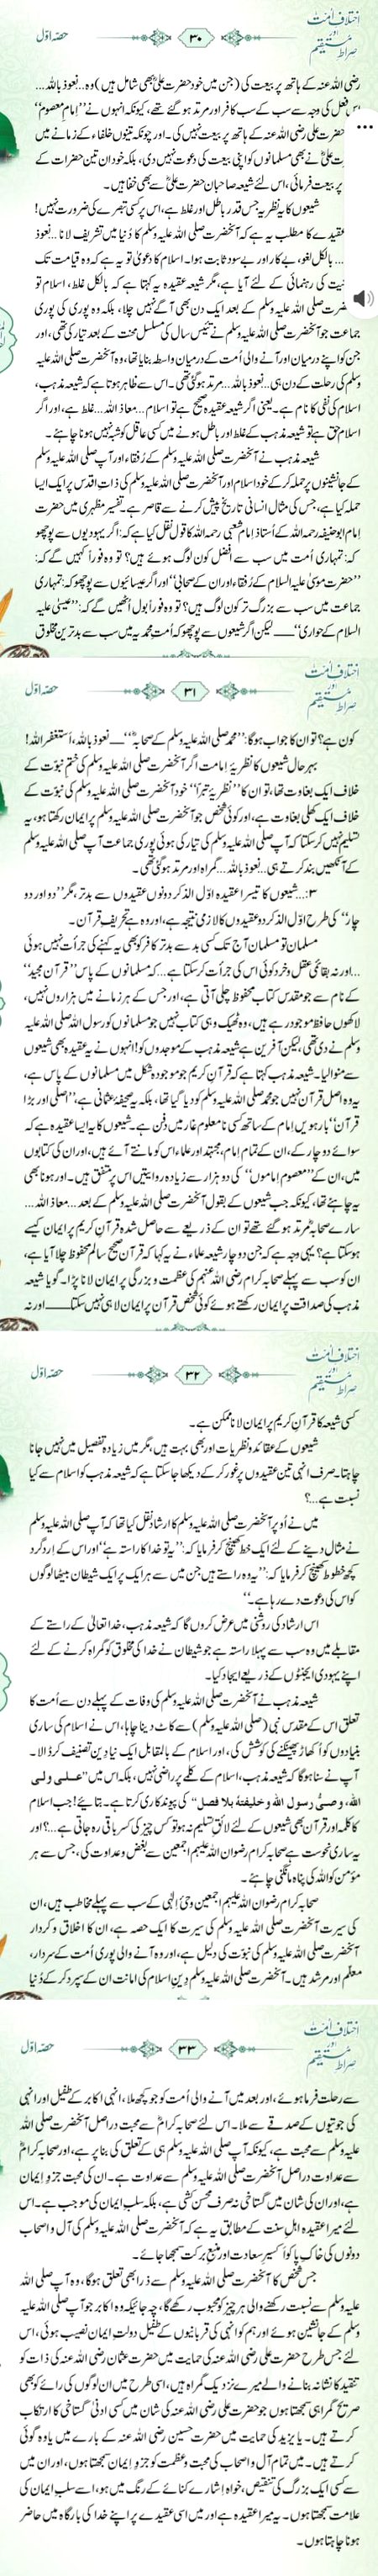 اختلافِ اُمت اور صراطِ مستقیم
۳۰
حصہ اوّل
رضی اللہ عنہ کے ہاتھ پر بیعت کی (جن میں خود حضرت علیؓ بھی شامل ہیں) وہ... نعوذ باللہ...
اس فعل کی وجہ سے سب کے سب کافر اور مرتد ہوگئے تھے، کیونکہ انہوں نے ”امامِ معصوم“
حضرت علی رضی اللہ عنہ کے ہاتھ پر بیعت نہیں کی۔ اور چونکہ تینوں خلفاء کے زمانے میں
علیؓ نے بھی مسلمانوں کو اپنی بیعت کی دعوت نہیں دی، بلکہ خود ان تین حضرات کے
پر بیعت فرمائی، اس لئے شیعہ صاحبان حضرت علیؓ سے بھی خفا ہیں۔
شیعوں کا یہ نظریہ جس قدر باطل اور غلط ہے، اس پر کسی تبصرے کی ضرورت نہیں!
عقیدے کا مطلب یہ ہے کہ آنحضرت صلی اللہ علیہ وسلم کا دُنیا میں تشریف لانا... نعوذ
... بالکل لغو، بے کار اور بے سود ثابت ہوا۔ اسلام کا دعویٰ تو یہ ہے کہ وہ قیامت تک
نیت کی رہنمائی کے لئے آیا ہے، مگر شیعہ عقیدہ یہ کہتا ہے کہ بالکل غلط، اسلام تو
حضرت صلی اللہ علیہ وسلم کے بعد ایک دن بھی آگے نہیں چلا، بلکہ وہ پوری کی پوری
جماعت جو آنحضرت صلی اللہ علیہ وسلم نے تیئیس سال کی مسلسل محنت کے بعد تیار کی تھی، اور
جن کو اپنے درمیان اور آنے والی اُمت کے درمیان واسطہ بنایا تھا، وہ آنحضرت صلی اللہ علیہ
وسلم کی رحلت کے دن ہی... نعوذ باللہ... مرتد ہوگئی تھی۔ اس سے ظاہر ہوتا ہے کہ شیعہ مذہب،
اسلام کی نفی کا نام ہے۔ یعنی اگر شیعہ عقیدہ صحیح ہے تو اسلام... معاذ اللہ... غلط ہے، اور اگر
اسلام حق ہے تو شیعہ مذہب کے غلط اور باطل ہونے میں کسی عاقل کو شبہ نہیں ہونا چاہئے۔
شیعہ مذہب نے آنحضرت صلی اللہ علیہ وسلم کے رُفقاء اور آپ صلی اللہ علیہ وسلم
کے جانشینوں پر حملہ کرکے خود اسلام اور آنحضرت صلی اللہ علیہ وسلم کی ذاتِ اقدس پر ایک ایسا
حملہ کیا ہے، جس کی مثال انسانی تاریخ پیش کرنے سے قاصر ہے۔ تفسیر مظہری میں حضرت
امام ابوحنیفہ رحمہ اللہ کے اُستاذ اِمام شعبی رحمہ اللہ کا قول نقل کیا ہے کہ: اگر یہودیوں سے پوچھو
کہ: تمہاری اُمت میں سب سے افضل کون لوگ ہوئے ہیں؟ تو وہ فوراً کہیں گے کہ:
”حضرت موسیٰ علیہ السلام کے رُفقاء اور ان کے صحابی“ اور اگر عیسائیوں سے پوچھو کہ: تمہاری
جماعت میں سب سے بزرگ تر کون لوگ ہیں؟ تو وہ فوراً بول اُٹھیں گے کہ: ”عیسیٰ علیہ
السلام کے حواری“ — لیکن اگر شیعوں سے پوچھو کہ اُمتِ محمدیہ میں سب سے بدترین مخلوق
اختلافِ اُمت اور صراطِ مستقیم
۳۱
حصہ اوّل
کون ہے؟ تو ان کا جواب ہوگا: ”محمد صلی اللہ علیہ وسلم کے صحابہؓ“ — نعوذ باللہ، استغفر اللہ!
بہر حال شیعوں کا نظریۂ امامت اگر آنحضرت صلی اللہ علیہ وسلم کی ختمِ نبوّت کے
خلاف ایک بغاوت تھا، تو ان کا ”نظریۂ تبرّا“ خود آنحضرت صلی اللہ علیہ وسلم کی نبوّت کے
خلاف ایک کھلی بغاوت ہے، اور کوئی شخص جو آنحضرت صلی اللہ علیہ وسلم پر ایمان رکھتا ہو، یہ
تسلیم نہیں کرسکتا کہ آپ صلی اللہ علیہ وسلم کی تیار کی ہوئی پوری جماعت آپ صلی اللہ علیہ وسلم
کے آنکھیں بند کرتے ہی... نعوذ باللہ... گمراہ اور مرتد ہوگئی تھی۔
۳:... شیعوں کا تیسرا عقیدہ اوّل الذکر دونوں عقیدوں سے بدتر، مگر ”دو اور دو
چار“ کی طرح اوّل الذکر دو عقیدوں کا لازمی نتیجہ ہے، اور وہ ہے تحریفِ قرآن۔
مسلمان تو مسلمان آج تک کسی بد سے بدتر کافر کو بھی یہ کہنے کی جرأت نہیں ہوئی
... اور نہ بقائمی عقل و خرد کوئی اس کی جرأت کرسکتا ہے... کہ مسلمانوں کے پاس ”قرآن مجید“
کے نام سے جو مقدس کتاب محفوظ چلی آتی ہے، اور جس کے ہر زمانے میں ہزاروں نہیں،
لاکھوں حافظ موجود رہے ہیں، وہ ٹھیک وہی کتاب نہیں جو مسلمانوں کو رسول اللہ صلی اللہ علیہ
وسلم نے دی تھی، لیکن آفرین ہے شیعہ مذہب کے موجدوں کو! انہوں نے یہ عقیدہ بھی شیعوں
سے منوالیا۔ شیعہ مذہب کہتا ہے کہ قرآن کریم جو موجودہ شکل میں مسلمانوں کے پاس ہے،
یہ وہ اصل قرآن نہیں جو محمد صلی اللہ علیہ وسلم کو دیا گیا تھا، بلکہ یہ صحیفۂ عثمانی ہے، ”اصلی اور بڑا
قرآن“ بارہویں اِمام کے ساتھ کسی نامعلوم غار میں دفن ہے۔ شیعوں کا یہ ایسا عقیدہ ہے کہ
سوائے دو چار کے، ان کے تمام اِمام، مجتہد اور علماء اس کو مانتے آئے ہیں، اور ان کی کتابوں
میں، ان کے ”معصوم اِماموں“ کی دو ہزار سے زیادہ روایتیں اس پر متفق ہیں۔ اور ہونا بھی
یہی چاہئے تھا، کیونکہ جب شیعوں کے بقول آنحضرت صلی اللہ علیہ وسلم کے بعد... معاذ اللہ...
سارے صحابہؓ مرتد ہوگئے تھے تو ان کے ذریعے سے حاصل شدہ قرآنِ کریم پر ایمان کیسے
ہوسکتا ہے؟ یہی وجہ ہے کہ جن دو چار شیعہ علماء نے یہ کہا کہ قرآن صحیح سالم محفوظ چلا آیا ہے،
ان کو سب سے پہلے صحابہ کرام رضی اللہ عنہم کی عظمت و بزرگی پر ایمان لانا پڑا۔ گویا شیعہ
مذہب کی صداقت پر ایمان رکھتے ہوئے کوئی شخص قرآن پر ایمان لا ہی نہیں سکتا — اور نہ
اختلافِ اُمت اور صراطِ مستقیم
۳۲
حصہ اوّل
کسی شیعہ کا قرآنِ کریم پر ایمان لانا ممکن ہے۔
شیعوں کے عقائد و نظریات اور بھی بہت ہیں، مگر میں زیادہ تفصیل میں نہیں جانا
چاہتا۔ صرف انہی تین عقیدوں پر غور کرکے دیکھا جاسکتا ہے کہ شیعہ مذہب کو اسلام سے کیا
نسبت ہے...؟
میں نے اُوپر آنحضرت صلی اللہ علیہ وسلم کا ارشاد نقل کیا تھا کہ آپ صلی اللہ علیہ وسلم
نے مثال دینے کے لئے ایک خط کھینچ کر فرمایا کہ: ”یہ تو خدا کا راستہ ہے“ اور اس کے اِردگرد
کچھ خطوط کھینچ کر فرمایا کہ: ”یہ وہ راستے ہیں جن میں سے ہر ایک پر ایک شیطان بیٹھا لوگوں
کو اس کی دعوت دے رہا ہے۔“
اس ارشاد کی روشنی میں عرض کروں گا کہ شیعہ مذہب، خدا تعالیٰ کے راستے کے
مقابلے میں وہ سب سے پہلا راستہ ہے جو شیطان نے خدا کی مخلوق کو گمراہ کرنے کے لئے
اپنے یہودی ایجنٹوں کے ذریعے ایجاد کیا۔
شیعہ مذہب نے آنحضرت صلی اللہ علیہ وسلم کی وفات کے پہلے دن سے اُمت کا
تعلق اس کے مقدس نبی (صلی اللہ علیہ وسلم) سے کاٹ دینا چاہا، اس نے اسلام کی ساری
بنیادوں کو اُکھاڑ پھینکنے کی کوشش کی، اور اسلام کے بالمقابل ایک نیا دِین تصنیف کر ڈالا۔
آپ نے سنا ہوگا کہ شیعہ مذہب، اسلام کے کلمے پر راضی نہیں، بلکہ اس میں ”علی ولی
اللہ، وصیُّ رسول اللہ وخلیفتہٗ بلا فصل“ کی پیوندکاری کرتا ہے۔ بتائیے! جب اسلام
کا کلمہ اور قرآن بھی شیعوں کے لئے لائقِ تسلیم نہ ہو تو کس چیز کی کسر باقی رہ جاتی ہے...؟ اور
یہ ساری نحوست ہے صحابہ کرام رضوان اللہ علیہم اجمعین سے بغض و عداوت کی، جس سے ہر
مؤمن کو اللہ کی پناہ مانگنی چاہئے۔
صحابہ کرام رضوان اللہ علیہم اجمعین وحی اِلٰہی کے سب سے پہلے مخاطب ہیں، ان
کی سیرت آنحضرت صلی اللہ علیہ وسلم کی سیرت کا ایک حصہ ہے، ان کا اخلاق و کردار
آنحضرت صلی اللہ علیہ وسلم کی نبوّت کی دلیل ہے، اور وہ آنے والی پوری اُمت کے سردار،
معلّم اور مرشد ہیں۔ آنحضرت صلی اللہ علیہ وسلم دِینِ اسلام کی امانت ان کے سپرد کرکے دُنیا
اختلافِ اُمت اور صراطِ مستقیم
۳۳
حصہ اوّل
سے رحلت فرما ہوئے، اور بعد میں آنے والی اُمت کو جو کچھ ملا، انہی اکابر کے طفیل اور انہی
کی جوتیوں کے صدقے سے ملا۔ اس لئے صحابہ کرامؓ سے محبت دراصل آنحضرت صلی اللہ
علیہ وسلم سے محبت ہے، کیونکہ آپ صلی اللہ علیہ وسلم ہی کے تعلق کی بنا پر ہے، اور صحابہ کرامؓ
سے عداوت دراصل آنحضرت صلی اللہ علیہ وسلم سے عداوت ہے۔ ان کی محبت جزوِ ایمان
ہے، اور ان کی شان میں گستاخی نہ صرف محسن کشی ہے، بلکہ سلبِ ایمان کی موجب ہے۔ اس
لئے میرا عقیدہ اہلِ سنت کے مطابق یہ ہے کہ آنحضرت صلی اللہ علیہ وسلم کی آل و اصحاب
دونوں کی خاکِ پا کو اکسیرِ سعادت اور منبعِ برکت سمجھا جائے۔
جس شخص کا آنحضرت صلی اللہ علیہ وسلم سے ذرا بھی تعلق ہوگا، وہ آپ صلی اللہ
علیہ وسلم سے نسبت رکھنے والی ہر چیز کو محبوب رکھے گا، چہ جائیکہ وہ اکابر جو آپ صلی اللہ علیہ
وسلم کے جانشین ہوئے اور ہم کو انہی کی قربانیوں کے طفیل دولتِ ایمان نصیب ہوئی، اس
لئے جس طرح حضرت علی رضی اللہ عنہ کی حمایت میں حضرت عثمان رضی اللہ عنہ کی ذات کو
تنقید کا نشانہ بنانے والے میرے نزدیک گمراہ ہیں، اسی طرح میں ان لوگوں کی رائے کو بھی
صریح گمراہی سمجھتا ہوں جو حضرت علی رضی اللہ عنہ کی شان میں کسی ادنیٰ گستاخی کا ارتکاب
کرتے ہیں۔ یا یزید کی حمایت میں حضرت حسین رضی اللہ عنہ کے بارے میں یاوہ گوئی
کرتے ہیں۔ میں تمام آل و اصحاب کی محبت و عظمت کو جزوِ ایمان سمجھتا ہوں، اور ان میں
سے کسی ایک بزرگ کی تنقیص، خواہ اِشارے کنائے کے رنگ میں ہو، اسے سلبِ ایمان کی
علامت سمجھتا ہوں۔ یہ میرا عقیدہ ہے اور میں اسی عقیدے پر اپنے خدا کی بارگاہ میں حاضر
ہونا چاہتا ہوں۔